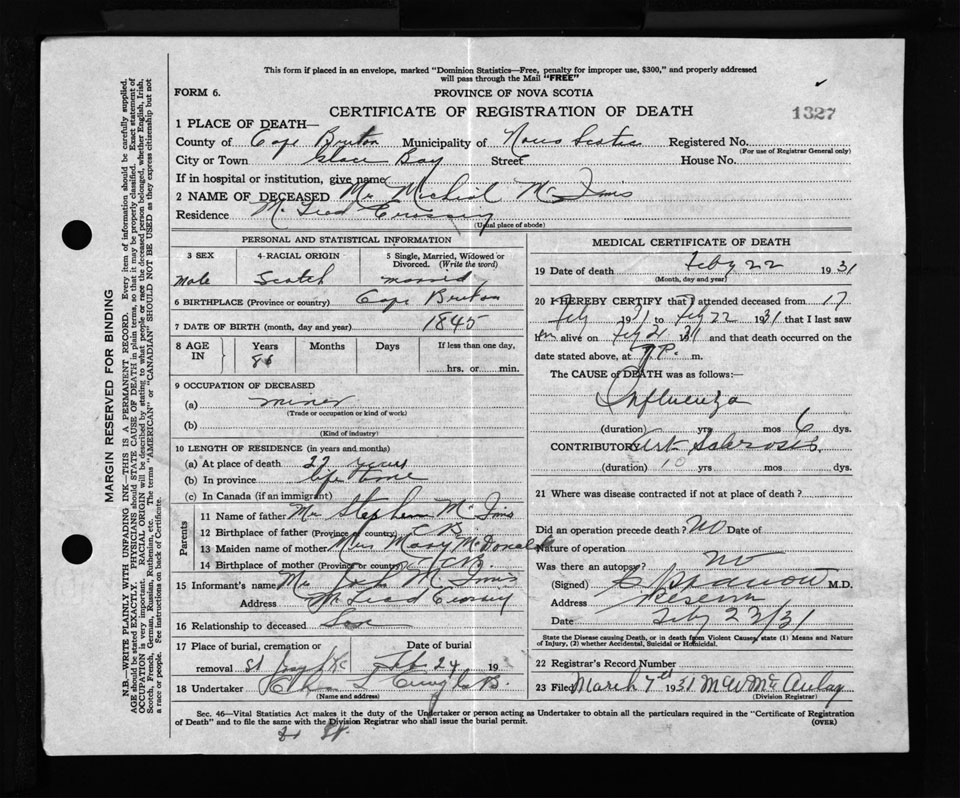 This form if placed in an envelope, marked "Dominion Statistics—Free, penalty for improper use, $300," and properly addressed
will pass through the Mail "FREE"
FORM 6.
PROVINCE OF NOVA SCOTIA
CERTIFICATE OF REGISTRATION OF DEATH
1327
1 PLACE OF DEATH—
County of Cape Breton Municipality of Nova Scotia Registered No.
(For use of Registrar General only)
City or Town Glace Bay Street House No.
If in hospital or institution, give name
2 NAME OF DECEASED Mr Micheal McInnis
Residence McLeod Crossing
(Usual place of abode)
PERSONAL AND STATISTICAL INFORMATION
3 SEX
Male
4 RACIAL ORIGIN
Scotch
5 Single, Married, Widowed or
Divorced. (Write the word)
married
6 BIRTHPLACE (Province or country) Cape Breton
7 DATE OF BIRTH (month, day and year) 1845
8 AGE
IN
Years
86
Months
Days
If less than one day,
hrs. or min.
9 OCCUPATION OF DECEASED
(a) miner
(Trade or occupation or kind of work)
(b)
(Kind of industry)
10 LENGTH OF RESIDENCE (in years and months)
(a) At place of death 27 years
(b) In province life time
(c) In Canada (if an immigrant)
Parents
11 Name of father Mr Stephen McInnis
12 Birthplace of father (Province or country) C B.
13 Maiden name of mother Mrs Mary McDonald
14 Birthplace of mother (Province or country) C B.
15 Informant's name Mr John McInnis
Address McLeod Crossing
16 Relationship to deceased Son
17 Place of burial, cremation or
removal St
Date of burial
Feb 24 19
18 Undertaker
(Name and address)
MEDICAL CERTIFICATE OF DEATH
19 Date of death Feby 22 1931
(Month, day and year)
20 I HEREBY CERTIFY that I attended deceased from 17
Feby 1931 to Feby 22 1931 that I last saw
him alive on Feby 21 1931 and that death occurred on the
date stated above, at P. m.
The CAUSE of DEATH was as follows:—
Influenza
(duration) yrs mos 6 dys.
CONTRIBUTORY Art Sclerosis
(duration) 10 yrs mos dys.
21 Where was disease contracted if not at place of death?
Did an operation precede death? No Date of
Nature of operation
Was there an autopsy? no
(Signed) M.D.
Address
Date Feby 23/31
State the Disease causing Death, or in death from Violent Causes, state (1) Means and Nature
of Injury, (2) whether Accidental, Suicidal or Homicidal.
22 Registrar's Record Number
23 Filed March 7th 1931 M W McAulay
(Division Registrar)
Sec. 46—Vital Statistics Act makes it the duty of the Undertaker or person acting as Undertaker to obtain all the particulars required in the "Certificate of Registration
of Death" and to file the same with the Division Registrar who shall issue the burial permit.
(OVER)
MARGIN RESERVED FOR BINDING
N.B.—WRITE PLAINLY WITH UNFADING INK—THIS IS A PERMANENT RECORD. Every item of information should be carefully supplied.
AGE should be stated EXACTLY. PHYSICIANS should STATE CAUSE OF DEATH in plain terms, so that it may be properly classified. Exact statement of
OCCUPATION is very important. RACIAL ORIGIN will be described by stating to what people or race the deceased person belonged, whether English, Irish,
Scotch, French, German, Russian, Ruthenian, etc. The terms "AMERICAN" or "CANADIAN" SHOULD NOT BE USED as they express citizenship but not
a race or people. See instructions on back of Certificate.